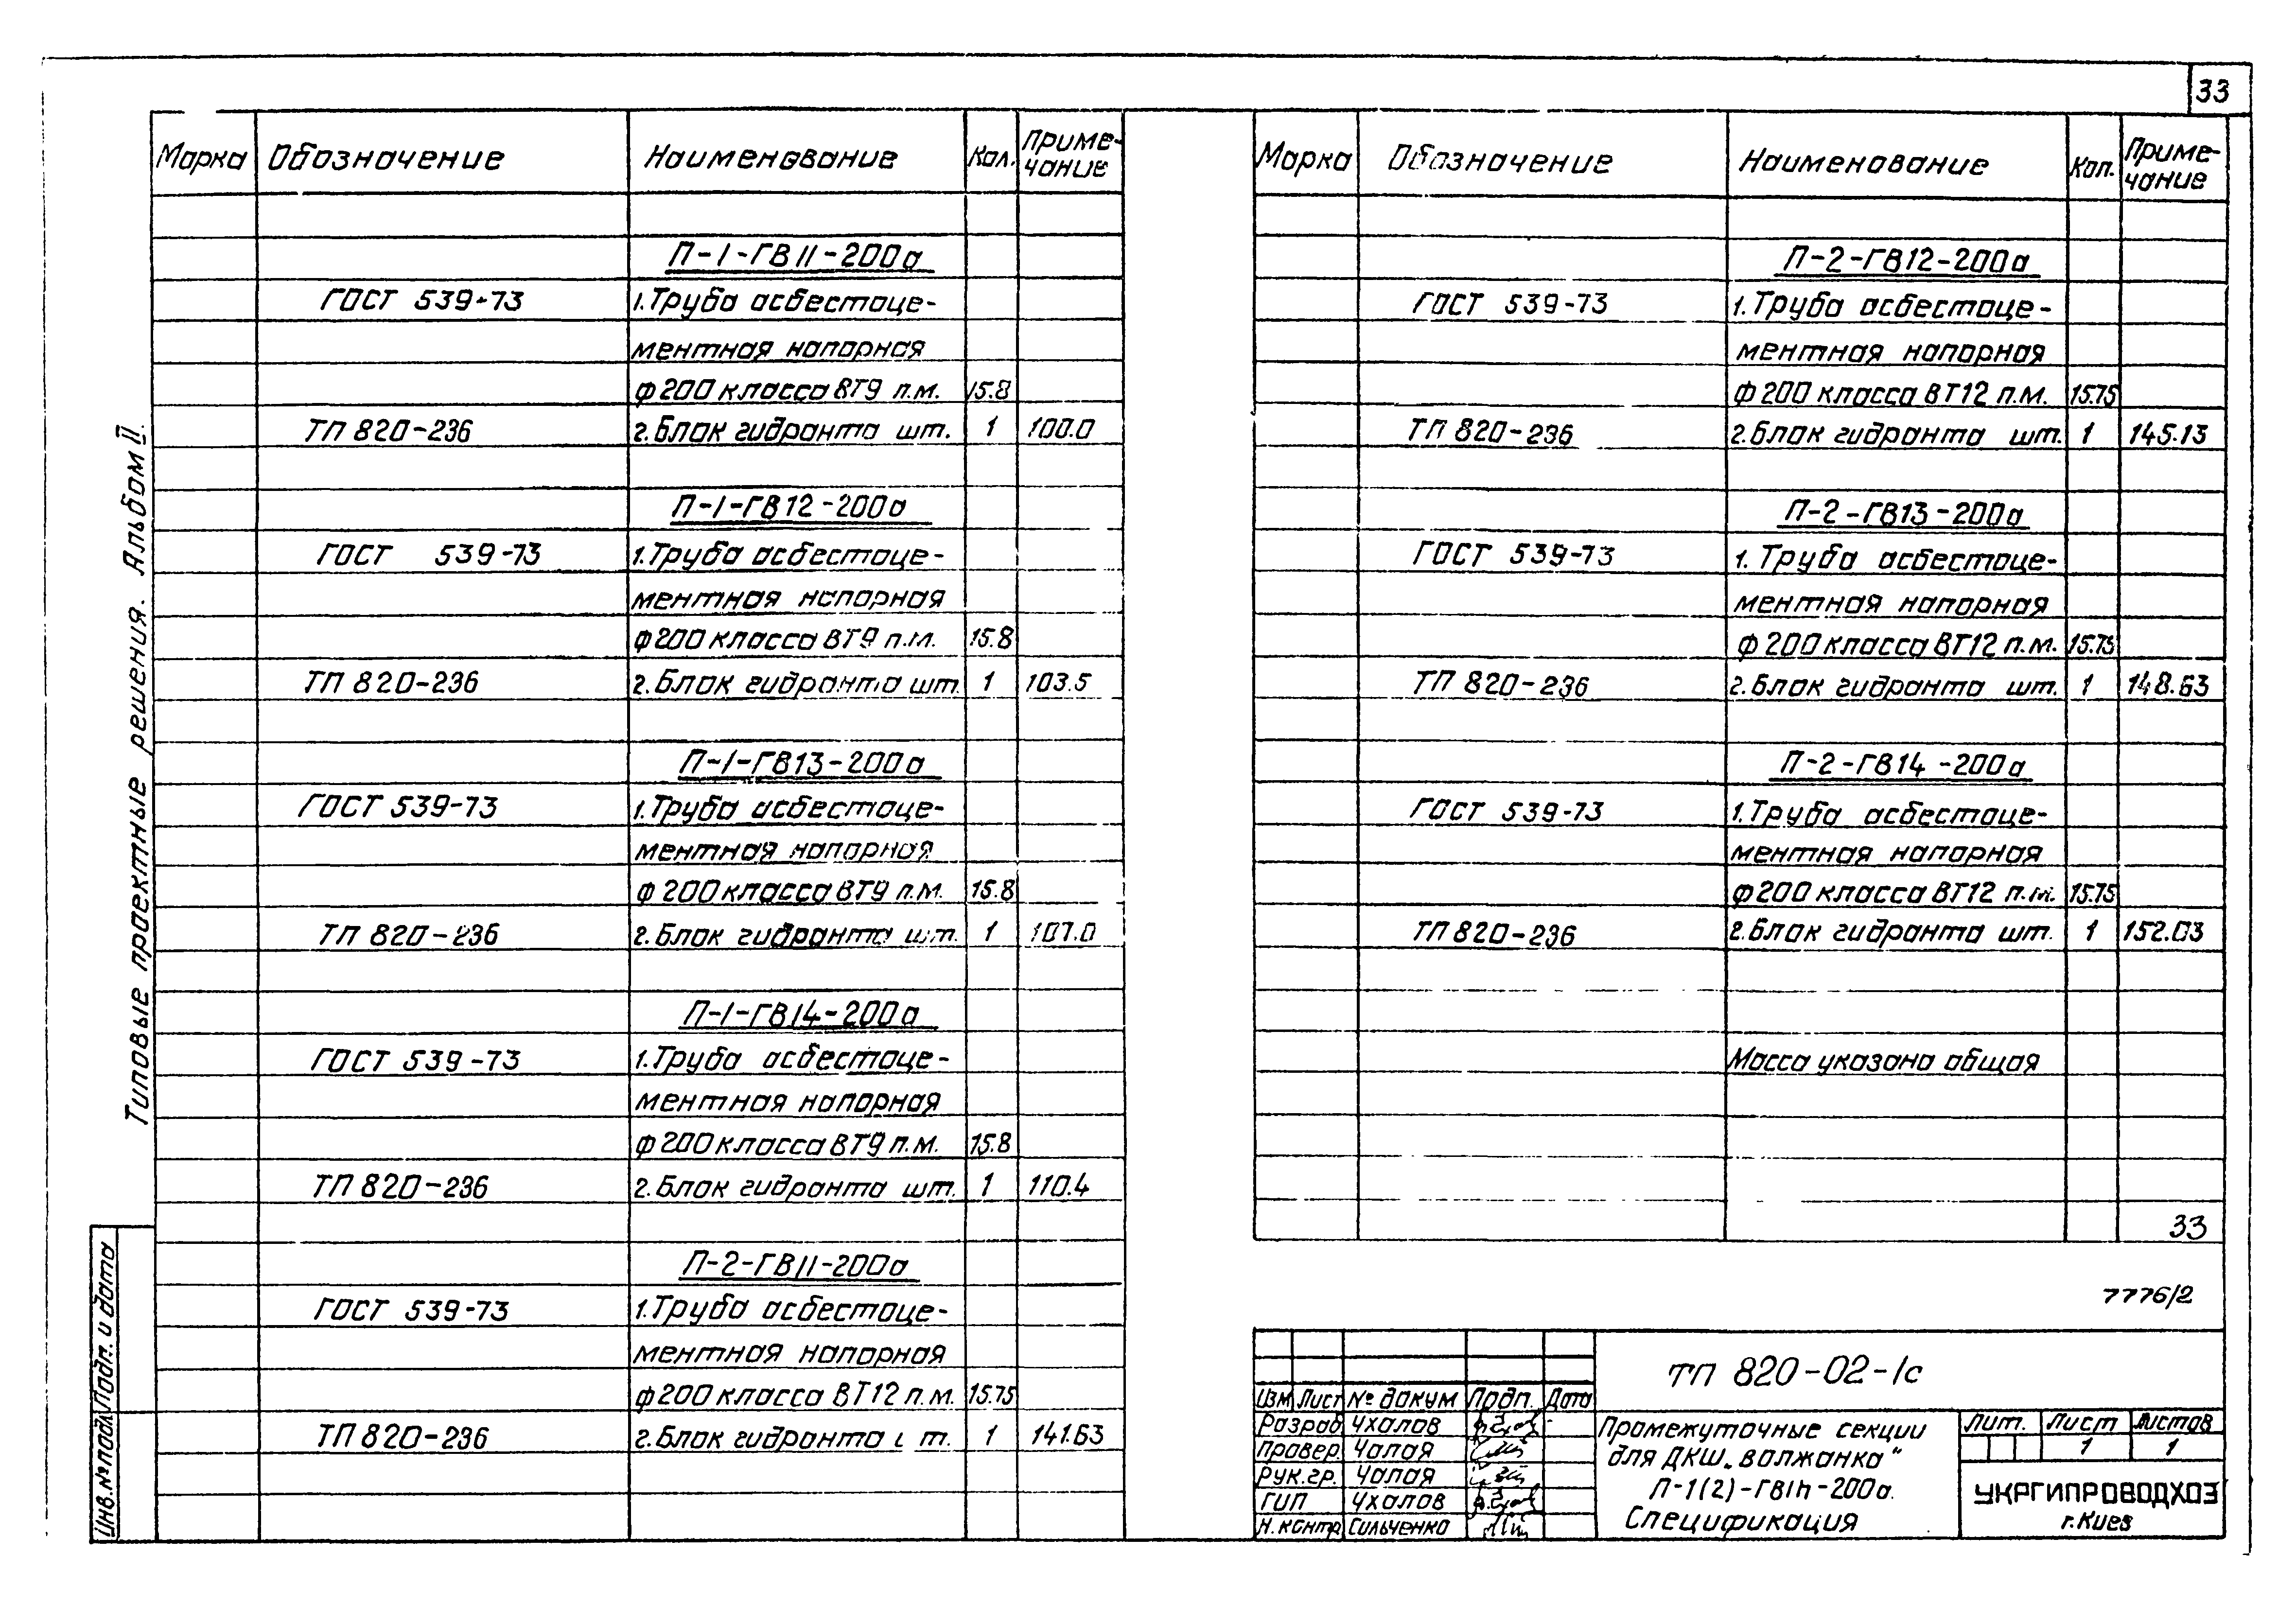 33
Марка Обозначение Наименование Кол. Приме-
чание
П-1-ГВ11-200а
ГОСТ 539-73 1. Труба асбестоце-
ментная напорная
ф200 класса ВТ9 п.м. 15.8
ТП 820-236 2. Блок гидранта шт. 1 100.0
П-1-ГВ12-200а
ГОСТ 539-73 1. Труба асбестоце-
ментная напорная
ф200 класса ВТ9 п.м. 15.8
ТП 820-236 2. Блок гидранта шт. 1 103.5
П-1-ГВ13-200а
ГОСТ 539-73 1. Труба асбестоце-
ментная напорная
ф200 класса ВТ9 п.м. 15.8
ТП 820-236 2. Блок гидранта шт. 1 107.0
П-1-ГВ14-200а
ГОСТ 539-73 1. Труба асбестоце-
ментная напорная
ф200 класса ВТ9 п.м. 15.8
ТП 820-236 2. Блок гидранта шт. 1 110.4
П-2-ГВ11-200а
ГОСТ 539-73 1. Труба асбестоце-
ментная напорная
ф200 класса ВТ12 п.м. 15.75
ТП 820-236 2. Блок гидранта шт. 1 141.63
Марка Обозначение Наименование Кол. Приме-
чание
П-2-ГВ12-200а
ГОСТ 539-73 1. Труба асбестоце-
ментная напорная
ф200 класса ВТ12 п.м. 15.75
ТП 820-236 2. Блок гидранта шт. 1 145.13
П-2-ГВ13-200а
ГОСТ 539-73 1. Труба асбестоце-
ментная напорная
ф200 класса ВТ12 п.м. 15.75
ТП 820-236 2. Блок гидранта шт. 1 148.63
П-2-ГВ14-200а
ГОСТ 539-73 1. Труба асбестоце-
ментная напорная
ф200 класса ВТ12 п.м. 15.75
ТП 820-236 2. Блок гидранта шт. 1 152.03
Масса указана общая
33
7776/2
ТП 820-02-1с
Изм Лист № докум Подп. Дата
Разраб Чхалов
Провер. Чалая
Рук.гр. Чалая
ГИП Чхалов
Н.контр Сильченко
Промежуточные секции
для ДКШ „Волжанка"
П-1(2)-ГВ1h-200а.
Спецификация
Лит. Лист Листов
1 1
УКРГИПРОВОДХОЗ
г.Киев
Типовые проектные решения. Альбом II.
Подп. и дата
Инв.№ подл.